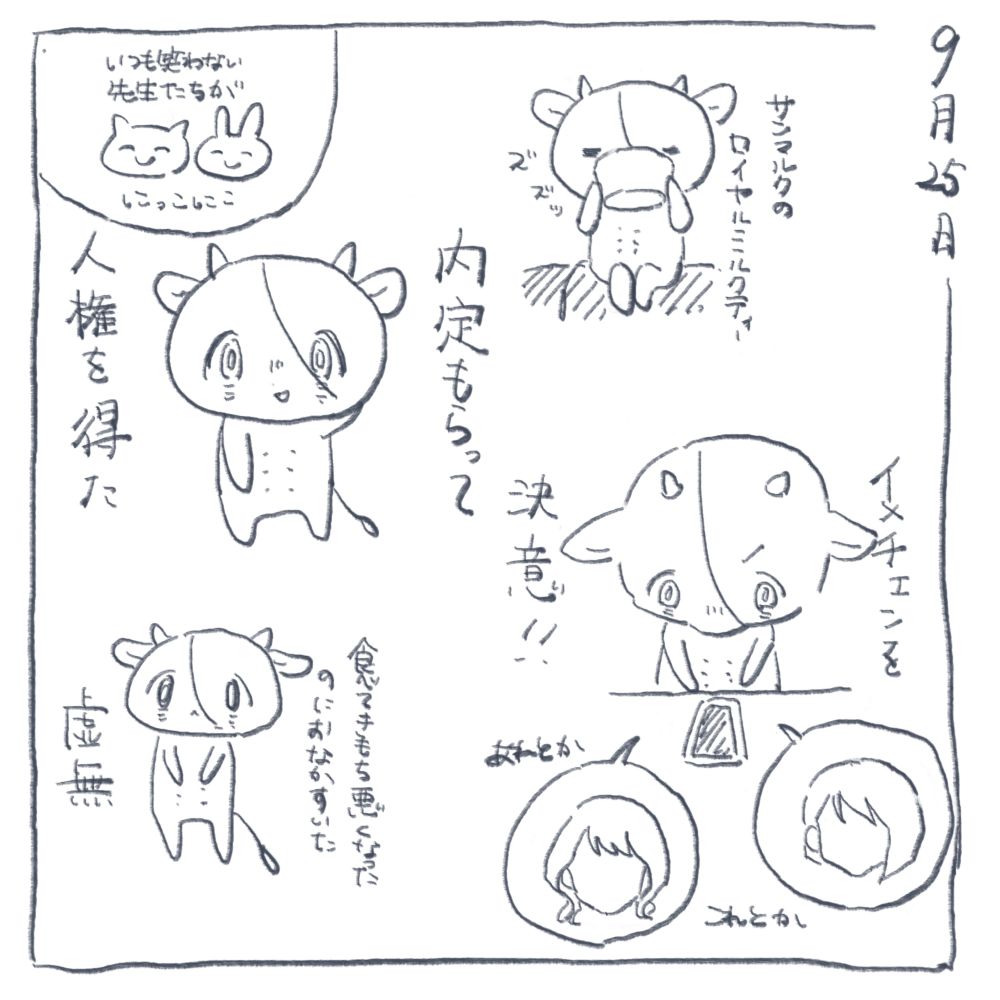 9月25日
サンマルクの
ロイヤルミルクティー
ズズズッ
イメチェンを
決意!!
これとか
あれとか
いつも笑わない
先生たちが
にこっにこ
内定もらって
人権を得た
食べてきもち悪くなった
のにおなかすいた
虚無